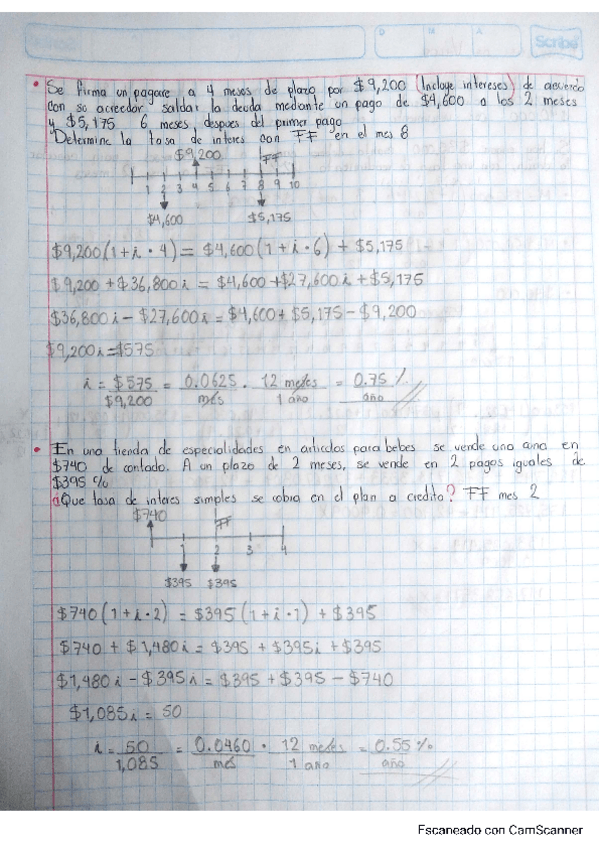 D M A Scribe
• Se firma un pagare a 4 meses de plazo por $9,200 (Incluye intereses) de acuerdo
con su acreedor saldar la deuda mediante un pago de $4,600 a los 2 meses
y $5,175 6 meses, despues del primer pago
Determine la tasa de interes con FF en el mes 8
$9,200 FF
1 2 3 4 5 6 7 8 9 10
$4,600 $5,175
$9,200(1+i·4)= $4,600(1+i·6) + $5,175
$9,200 + $36,800i = $4,600+$27,600i + $5,175
$36,800i - $27,600i = $4,600 + $5,175 - $9,200
$9,200i = $575
i = $575 = 0.0625 · 12 meses = 0.75 %
$9,200 mes 1 año año
• En una tienda de especialidades en articulos para bebes se vende una cuna en
$740 de contado. A un plazo de 2 meses, se vende en 2 pagos iguales de
$395 %
¿Que tasa de interes simples se cobra en el plan a credito? FF mes 2
$740 FF
1 2 3 4
$395 $395
$740(1+i·2) = $395(1+i·1) + $395
$740 + $1,480i = $395 + $395i + $395
$1,480i - $395i = $395 + $395 - $740
$1,085i = 50
i = 50 = 0.0460 · 12 meses = 0.55 %
1,085 mes 1 año año
Escaneado con CamScanner